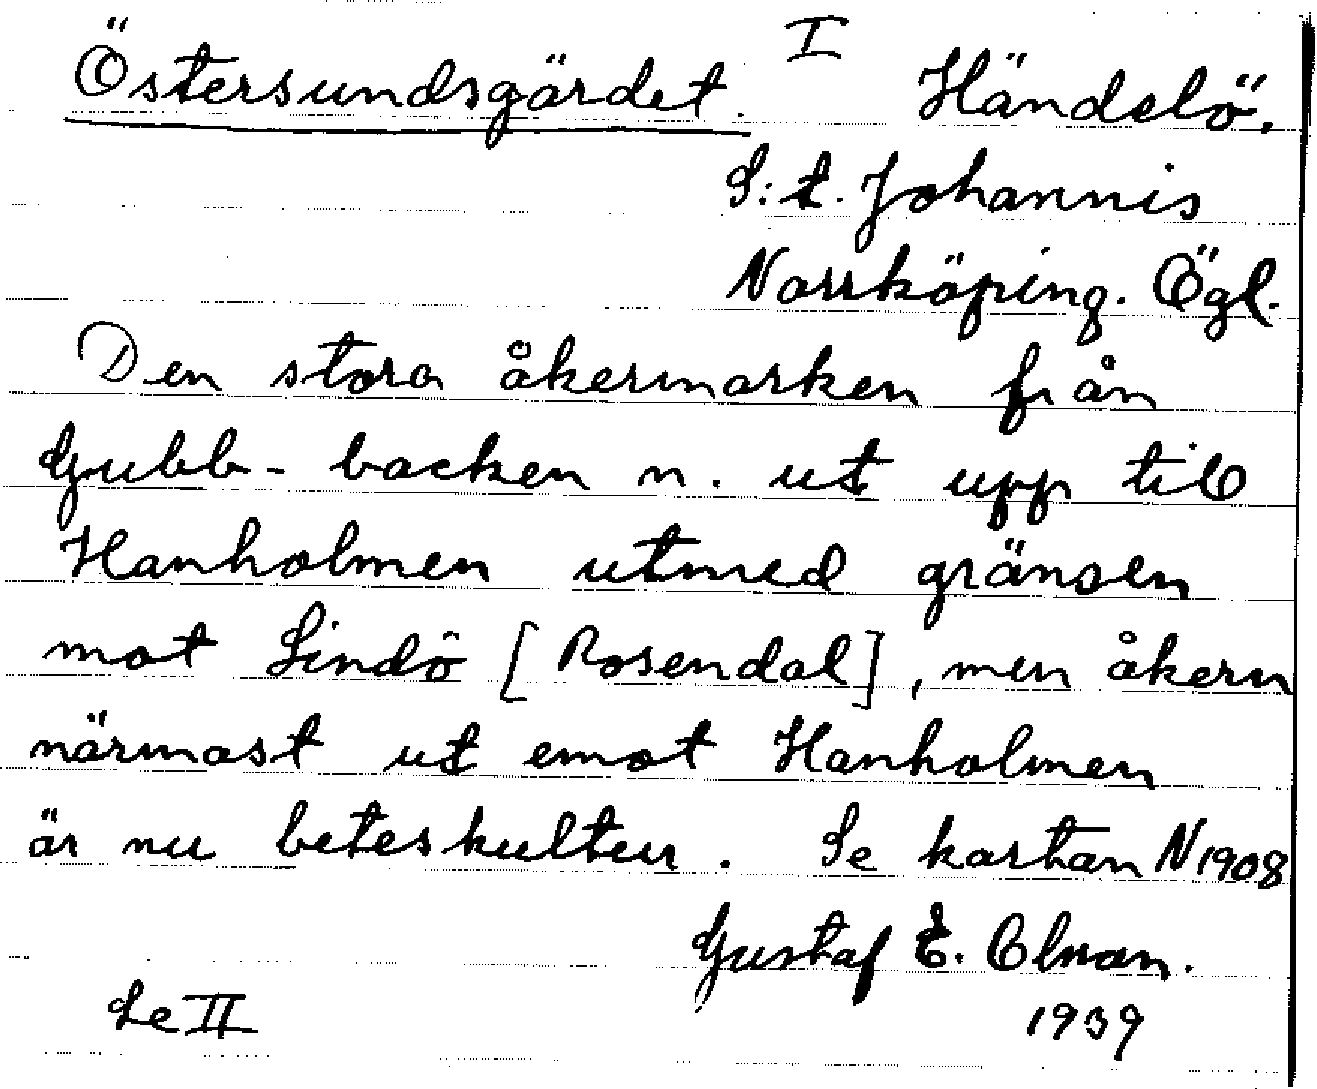 Östersundsgärdet. I Händelö.
S:t. Johannis
Norrköping. Ögl.
Den stora åkermarken från
Gubb- backen n. ut upp till
Hanholmen utmed gränsen
mot Lindö [Rosendal], men åkern
närmast ut emot Hanholmen
är nu beteskultur. Se kartan N 1908
Gustaf E.
Se II 1939